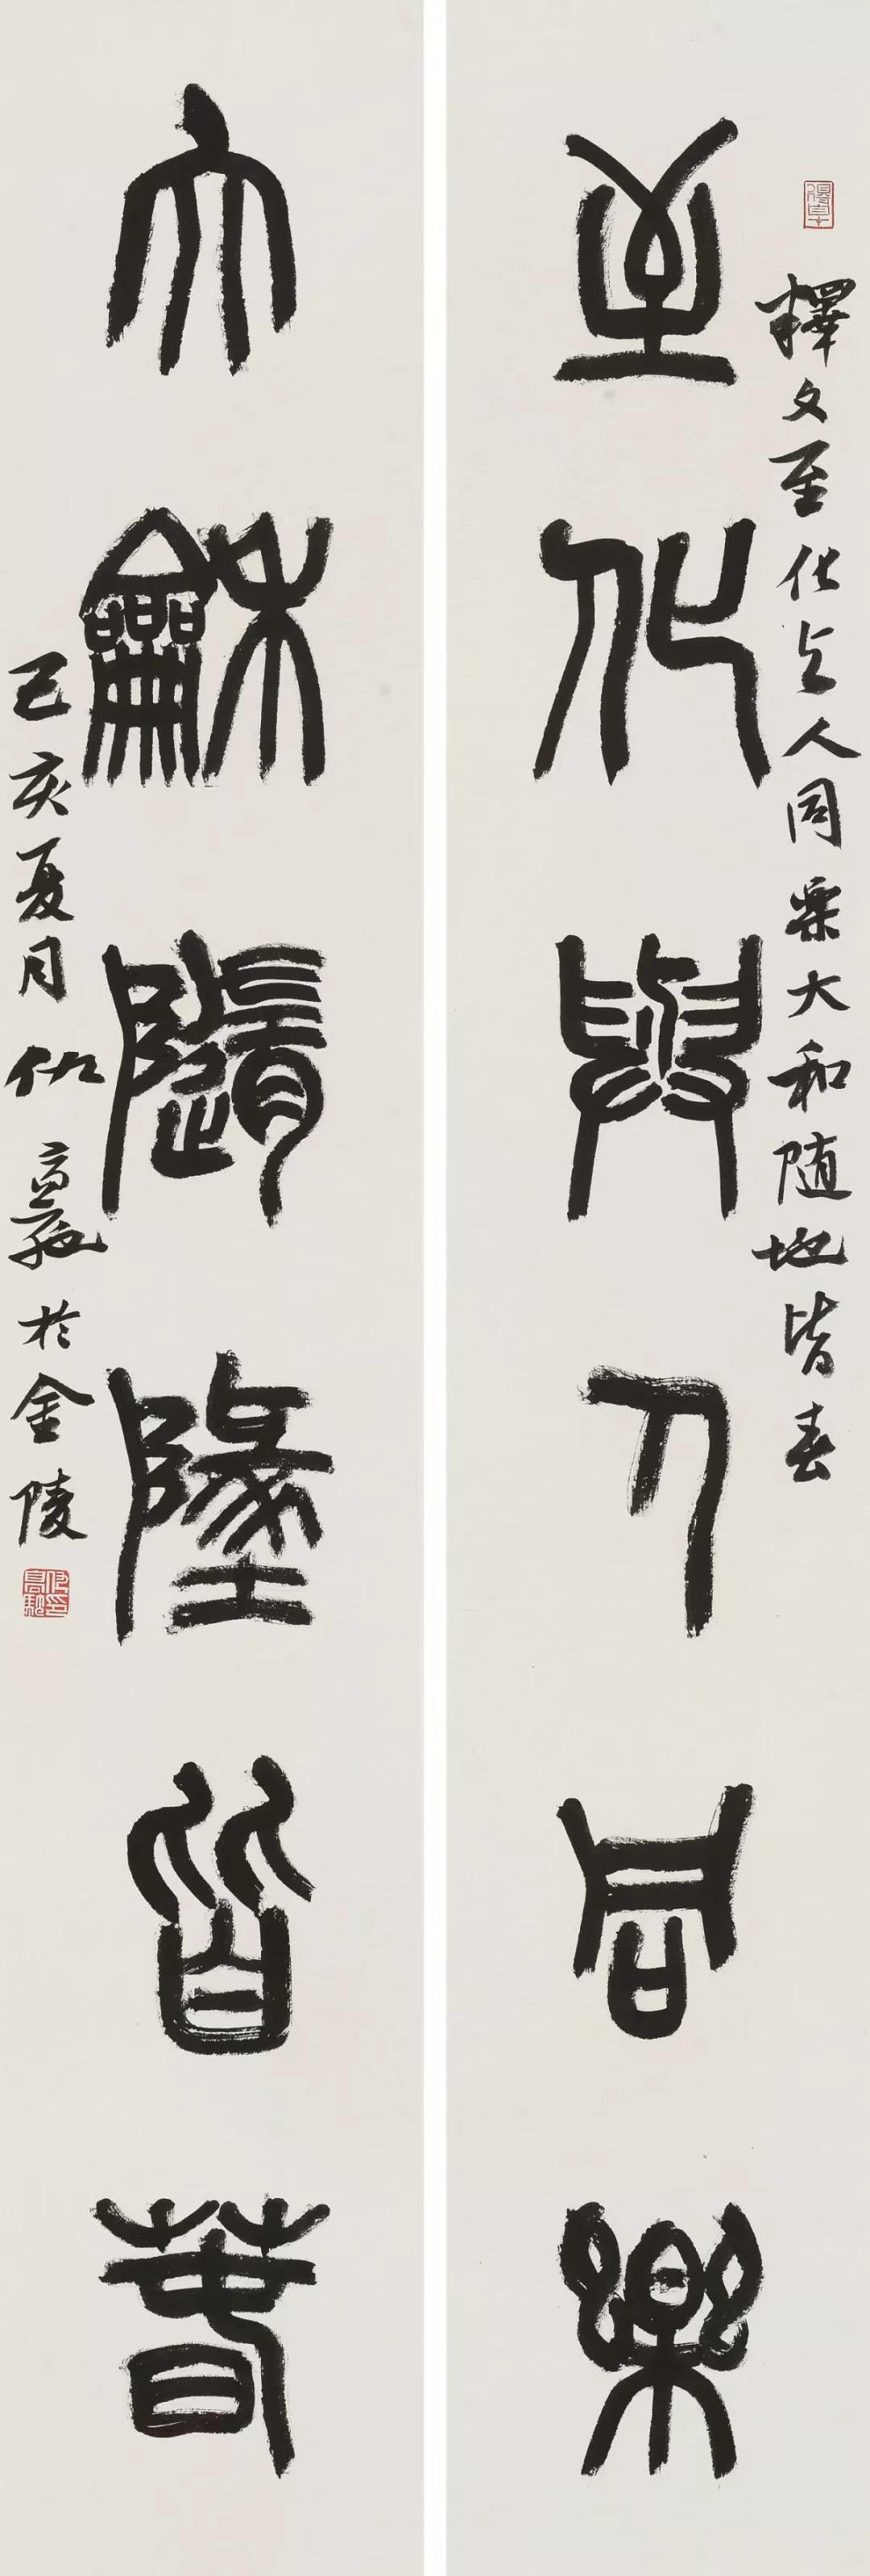 釋文至化與人同樂大和随地皆春
至化與人同樂
大龢隨墬皆萅
己亥夏月仇高馳於金陵